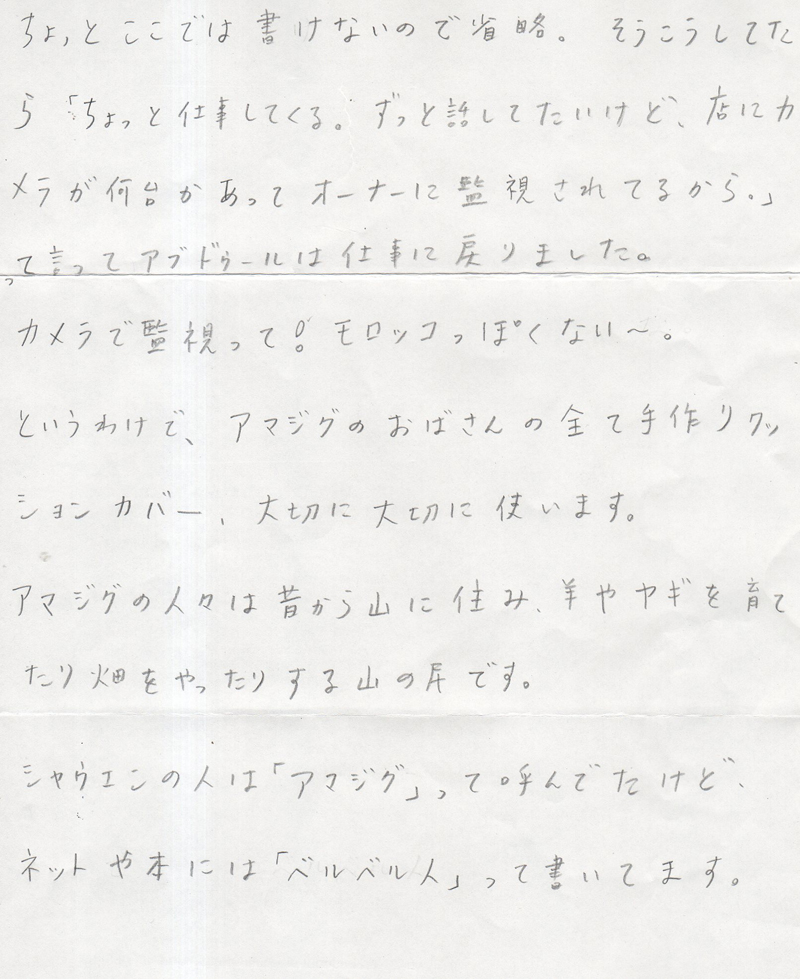 ちょっとここでは書けないので省略。 そうこうしてた
ら「ちょっと仕事してくる。ずっと話してたいけど、店にカ
メラが何台かあってオーナーに監視されてるから。」
って言ってアブドゥールは仕事に戻りました。
カメラで監視って！モロッコっぽくない〜。
というわけで、アマジグのおばさんの全て手作りクッ
ションカバー、大切に大切に使います。
アマジグの人々は昔から山に住み、羊やヤギを育て
たり畑をやったりする山の民です。
シャウエンの人は「アマジグ」って呼んでたけど、
ネットや本には「ベルベル人」って書いてます。